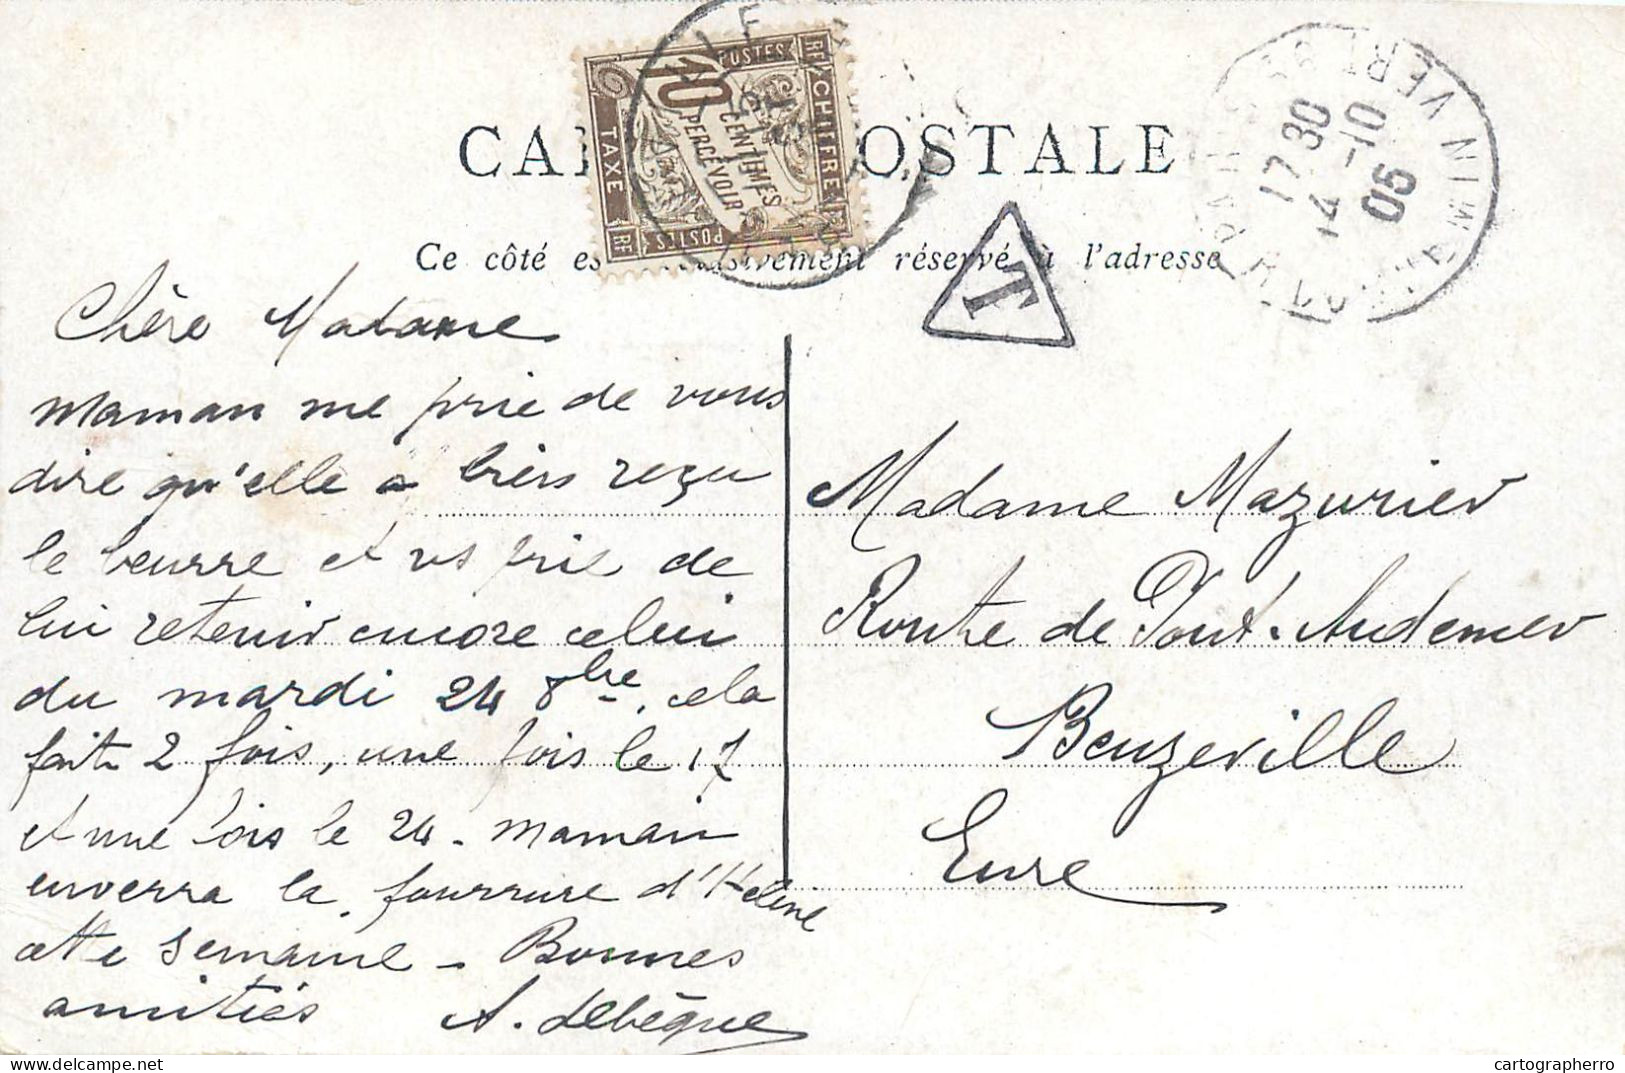 CARTE POSTALE
Ce côté est exclusivement réservé à l'adresse
POSTES
RF
CHIFFRE
10
CENTIMES
A PERCEVOIR
TAXE
RF
POSTES
T
17 30
14 -10
06
Chère Madame
Maman me prie de vous
dire qu'elle a bien reçu
le beurre et vs prie de
lui retenir encore celui
du mardi 24 8bre, cela
fait 2 fois, une fois le 17
et une fois le 24 - Maman
enverra la fourrure d'Hélène
cette semaine - Bonnes
amitiés A. Lebègue
Madame Mazurier
Route de Pont-Audemer
Beuzeville
Eure
cartographerro